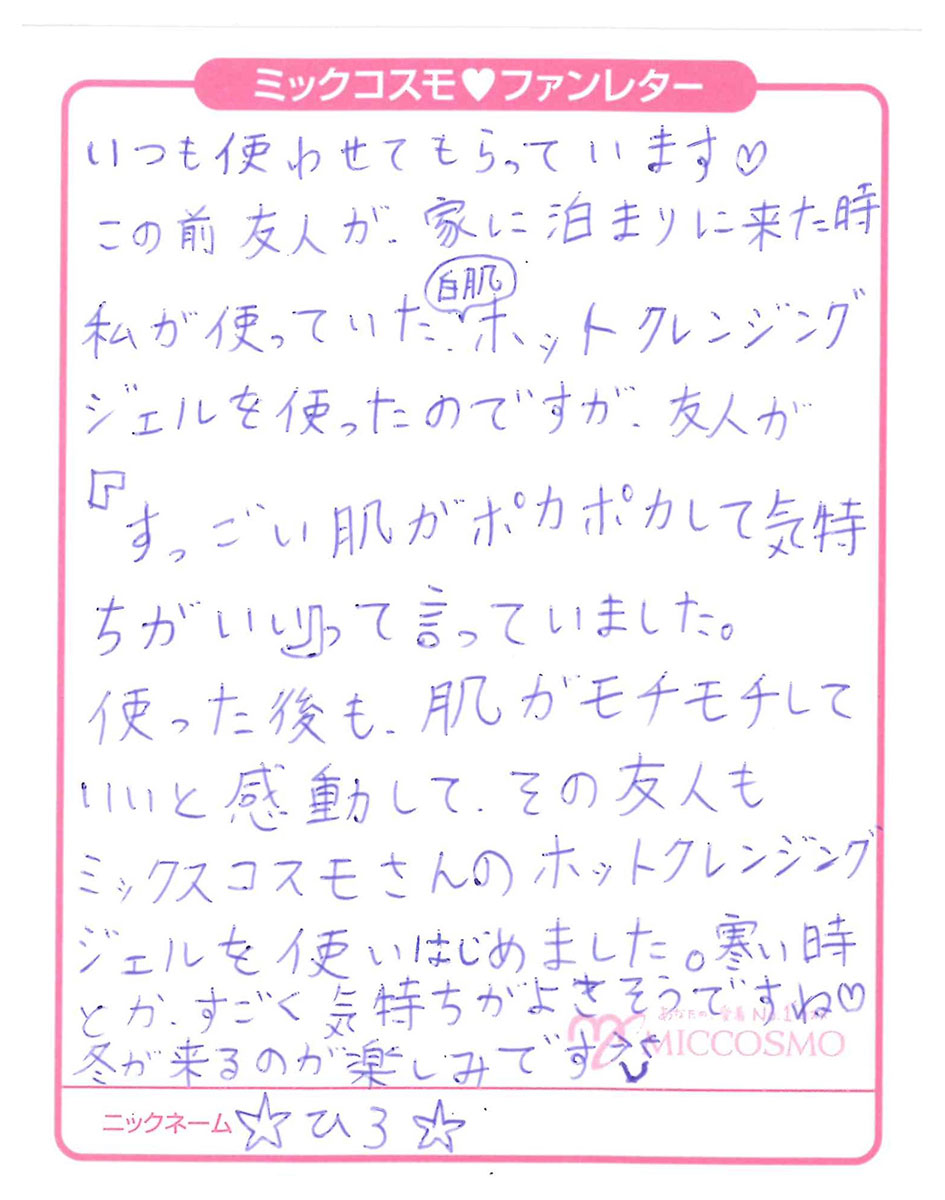 ミックコスモ♥ファンレター
いつも使わせてもらっています♡
この前友人が、家に泊まりに来た時
白肌
私が使っていた、ホットクレンジング
ジェルを使ったのですが、友人が
『すっごい肌がポカポカして気持
ちがいい』って言っていました。
使った後も、肌がモチモチして
いいと感動して、その友人も
ミックスコスモさんのホットクレンジング
ジェルを使いはじめました。寒い時
とか、すごく気持ちがよさそうですね♡
冬が来るのが楽しみです
MICCOSMO
ニックネーム ☆ひろ☆